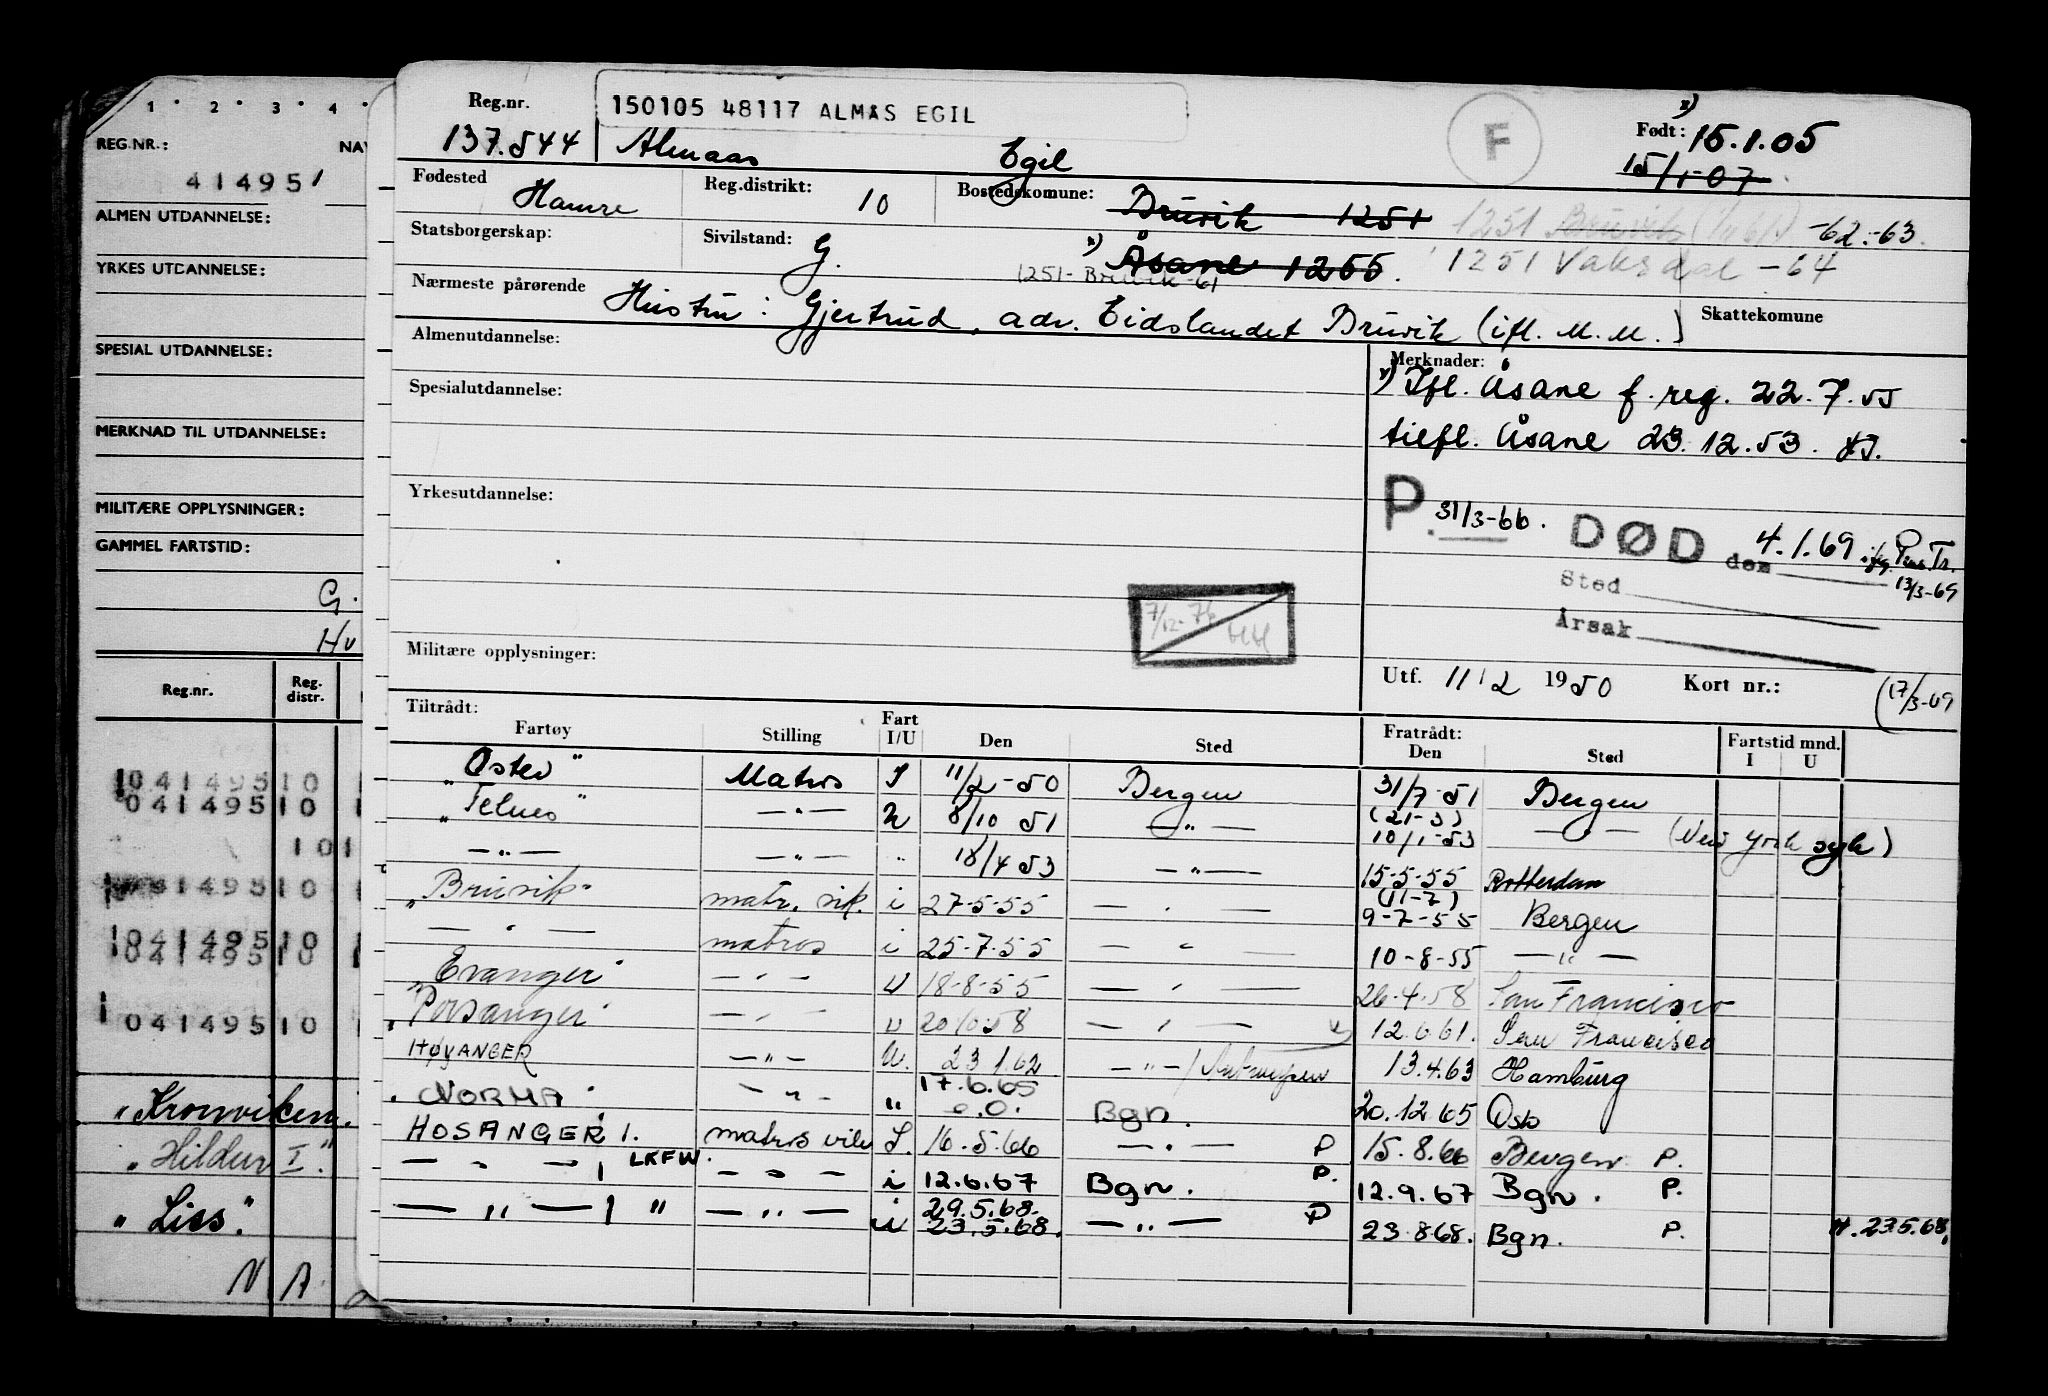 1 2 3 4
REG.NR.: NAV
414951
ALMEN UTDANNELSE:
YRKES UTDANNELSE:
SPESIAL UTDANNELSE:
MERKNAD TIL UTDANNELSE:
MILITÆRE OPPLYSNINGER:
GAMMEL FARTSTID:
G.
Hu
Reg.nr. Reg. distr.
10414951 0
0414951 0
101
0414951 0
0414951 0
"Kronviken."
"Hildur I."
"Liss".
N A.
Reg.nr. 150105 48117 ALMÅS EGIL F x) Født: 15.1.05
137.544 Almaas Egil 15/1-07
Fødested Hamre Reg.distrikt: 10 Bostedskomune: Bruvik - 1251 1251 Bruvik -62.-63.
Statsborgerskap: Sivilstand: G. x) Åsane 1255. 1251 Vaksdal -64
1251- Bruvik -61
Nærmeste pårørende Hustru: Gjertrud, adr. Eidslandet Bruvik (ifl. M.M.) Skattekomune
Almenutdannelse: Merknader:
x) Ifl. Åsane f. reg. 22.7.55
Spesialutdannelse:
tilfl. Åsane 23.12.53.
Yrkesutdannelse: P. 31/3-66. DØD den 4.1.69 ifg. Pens.Tr. 13/3-69
Sted
7/12-76
Årsak
Militære opplysninger:
Utf. 11/2 1950 Kort nr.: (17/3-69
Tiltrådt: Fratrådt:
Fartøy Stilling Fart I/U Den Sted Den Sted Fartstid mnd. I U
"Oster" Matros I 11/2-50 Bergen 31/7-51 Bergen
"Telnes" -"- U 8/10 51 -"- (21-3) 10/1-53 -"- (New York syk)
-"- -"- " 18/4 53 -"- 15-5-55 Rotterdam
"Bruvik" matr. vik. i 27-5-55 - " - (11-7) 9-7-55 Bergen
- " - matros i 25-7-55 - " - 10-8-55 -"-
"Evanger" -"- U 18-8-55 - " - 26-4-58 San Francisco
"Porsanger" -"- U 20/10 58 - " - 12.6.61. San Francisco
HØYANGER -"- U. 23 1.62 -"-/Antwerpen 13.4.63 Hamburg
"NORMA" -"- " 17.6.65 o.o. Bgn. 20.12.65 Oslo
HOSANGER 1. matros vik I. 16.5.66 -"- P 15.8.66 Bergen P.
- " - 1 LKFW. - " - i 12.6.67 Bgn. P. 12.9.67 Bgn. P.
- " - 1 " -"- i 29.5.68.
u 23.5.68. -"- P 23.8.68. Bgn. P. 23.5.68.